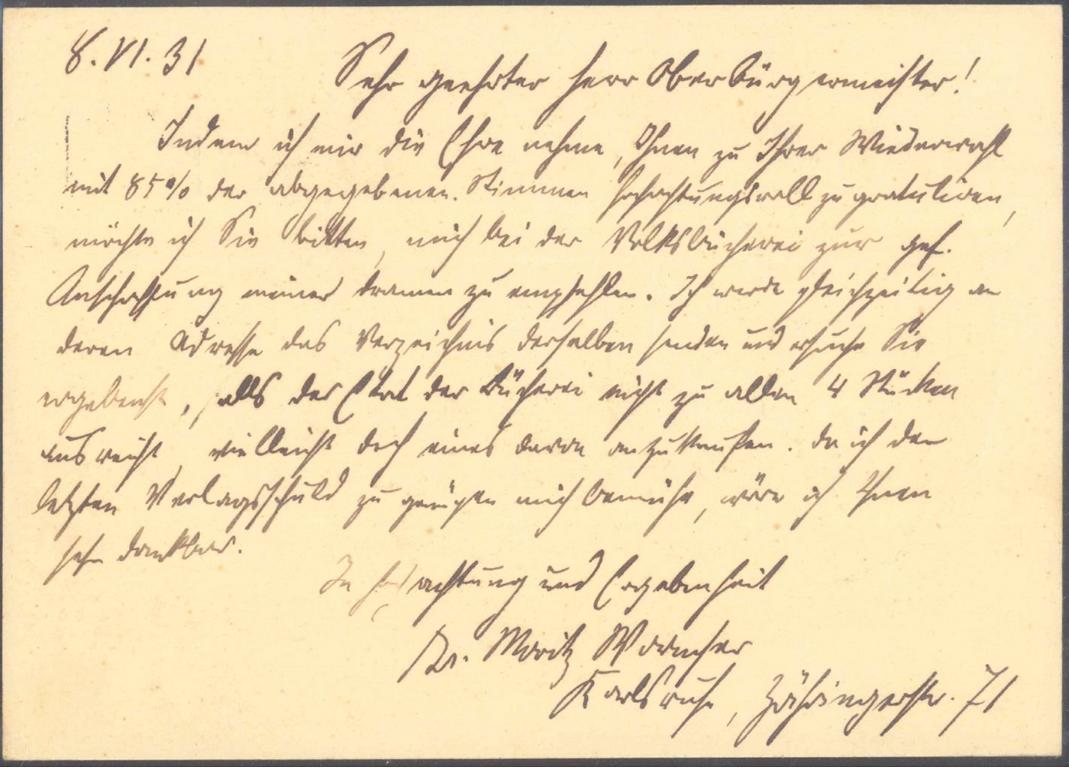 8. VI. 31
Sehr geehrter Herr Oberbürgermeister!
Indem ich mir die Ehre nehme, Ihnen zu Ihrer Wiederwahl
mit 85% der abgegebenen Stimmen hochachtungsvoll zu gratulieren,
möchte ich Sie bitten, mich bei der Volksbücherei zur gef.
Anschaffung meiner Dramen zu empfehlen. Ich werde gleichzeitig an
deren Adresse das Verzeichnis derselben senden und ersuche Sie
ergebenst, falls der Etat der Bücherei nicht zu allen 4 Stücken
ausreicht, vielleicht doch eines davon anzukaufen. Da ich der
letzten Verlagsschuld zu genügen mich bemühe, wäre ich Ihnen
sehr dankbar.
In Hochachtung und Ergebenheit
Dr. Moritz Wormser
Karlsruhe, Zähringerstr. 71